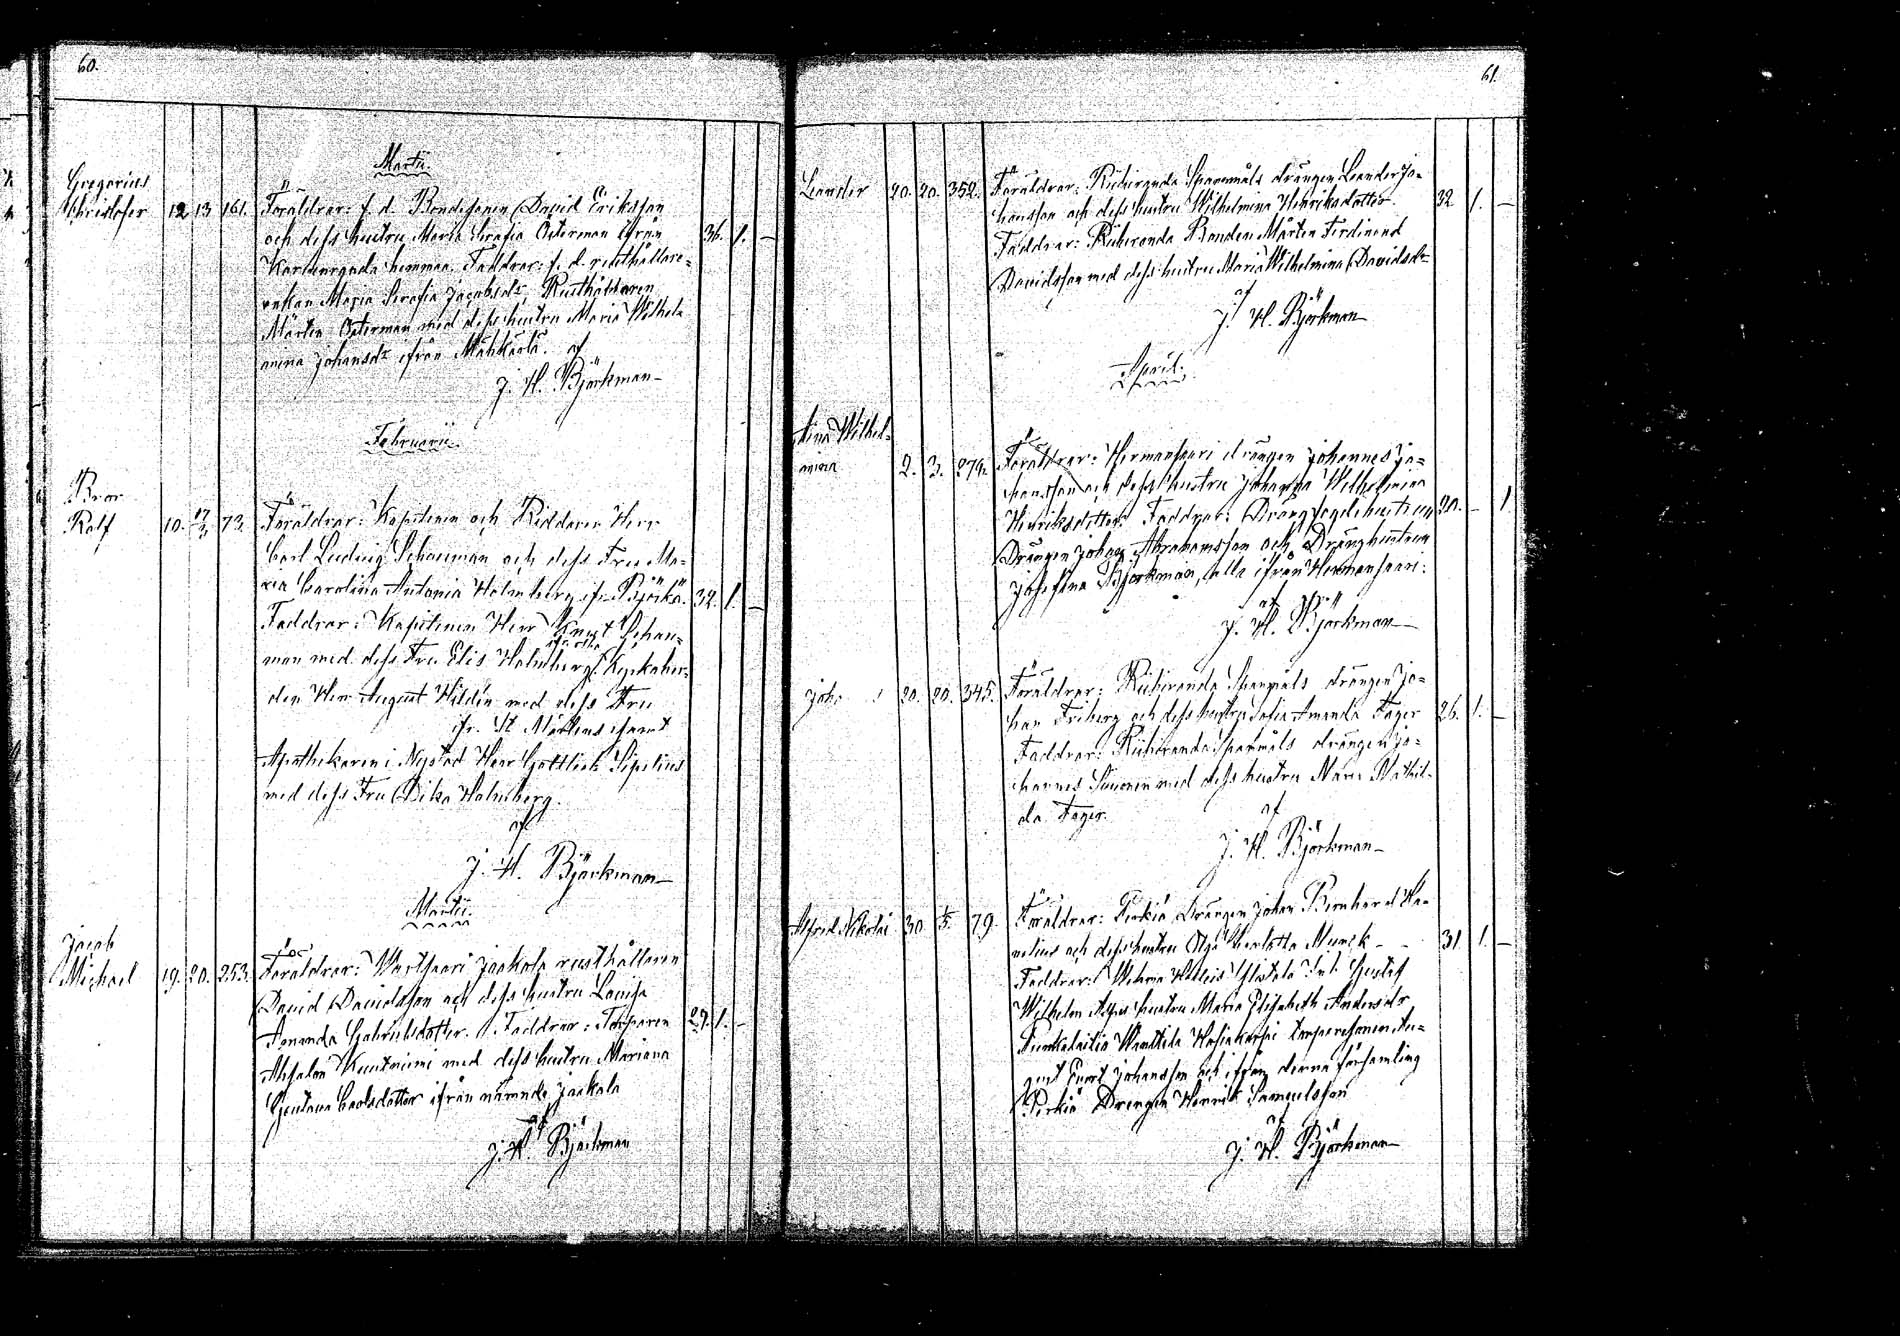 60.
Martii.
Gregorius
Christofer 12 13 161. Föräldrar: f. d. Bondesonen David Eriksson
och dess hustru Maria Serafia Österman ifrån 36. 1. –
hemman. Faddrar: f. d. rusthållare-
enkan Maria Serafia Jacobsdr, Rusthållaren
Mårten Österman med dess hustru Maria Wilhel-
mina Johansdr ifrån
af
J. H. Björkman
Februarii.
Bror
Rolf 10. 17/3 73. Föräldrar: Kapitenen och Riddaren Herr
Carl Ludvig Schauman och dess Fru Ma-
ria Carolina Antonia Holmberg, fr. Björkö. 32. 1. –
Faddrar: Kapitenen Herr Knut Schau-
man med dess Fru Elis Holmberg, Kyrkoher-
den Herr August Hildén med dess Fru
fr. St Mårtens samt
Apothekaren i Nystad Herr Gottlieb Sipelius
med dess Fru Holmberg.
af
J. H. Björkman
Martii.
Jacob
Michael 19. 20. 253. Föräldrar: Wartsaari Jaakola rusthållaren
David Davidsson och dess hustru Lovisa
Amanda Gabrielsdotter. Faddrar: Torparen 29. 1. –
Absalon med dess hustru Mariana
Gustava Carlsdotter ifrån nämnde Jaakola
af
J. H. Björkman
61.
Leander 20. 20. 352. Föräldrar: Riihiranda Spanmåls drängen Leander Jo-
hansson och dess hustru Wilhelmina Henriksdotter. 32 1. –
Faddrar: Riihiranda Bonden Mårten Ferdinand
Davidsson med dess hustru Maria Wilhelmina Davidsdr
af
J. H. Björkman
April.
Aina Wilhel-
mina 2. 3. 274. Föräldrar: Hermansaari drängen Johannes Jo-
hansson och dess hustru Johanna Wilhelmina
Henriksdotter. Faddrar: 20. – 1.
Drängen Johan Abrahamsson och Dränghustrun
Josefina Björkman, alla ifrån Hermansaari.
af
J. H. Björkman
Joh 20. 20. 345. Föräldrar: Riihiranda Spanmåls drängen Jo-
han Friberg och dess hustru Sofia Amanda Fager 26. 1. –
Faddrar: Riihiranda Spanmåls drängen Jo-
hannes Simonen med dess hustru Maria Mathil-
da Fager.
af
J. H. Björkman
Alfred Nikolai 30 1/5. 79. Föräldrar: Pirkiö Drängen Johan Bernhard
och dess hustru Olga Charlotta Munck 31. 1. –
Faddrar: Wehmo Gustaf
Wilhelm hustru Maria Elisabeth Andersdr
torparesonen Au-
gust Johansson och ifrån denna församling
Pirkiö Drengen Henrik Samuelsson
af
J. H. Björkman